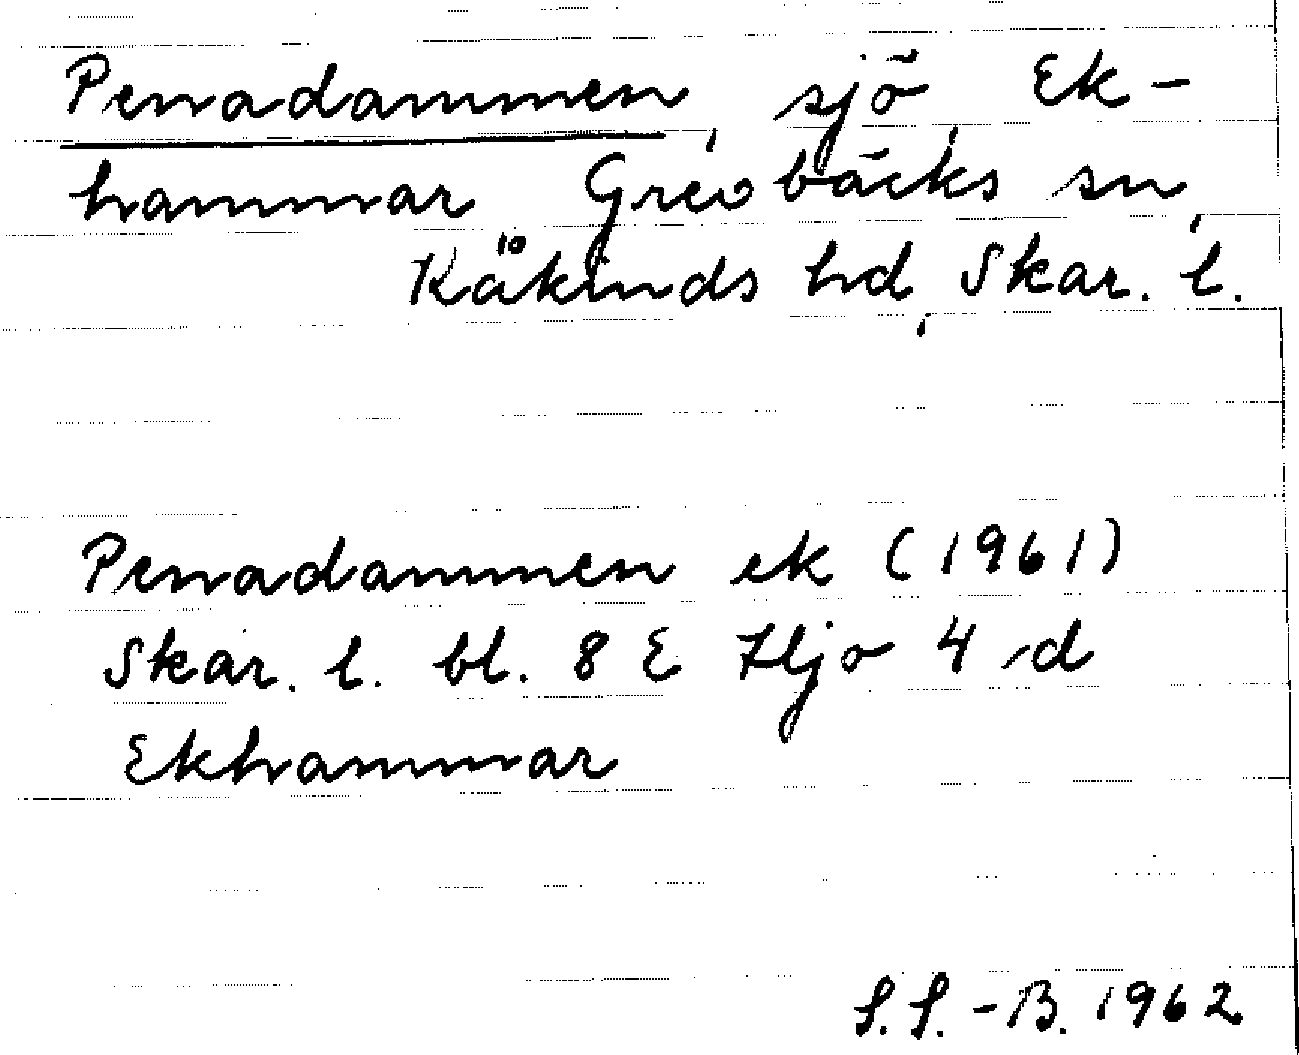 Penadammen, sjö, Ek-
hammar Grevbäcks sn,
Kåkinds hd, Skar. l.
Penadammen ek (1961)
Skar. l. bl. 8 E Hjo 4 d
Ekhammar
S.S.-B. 1962